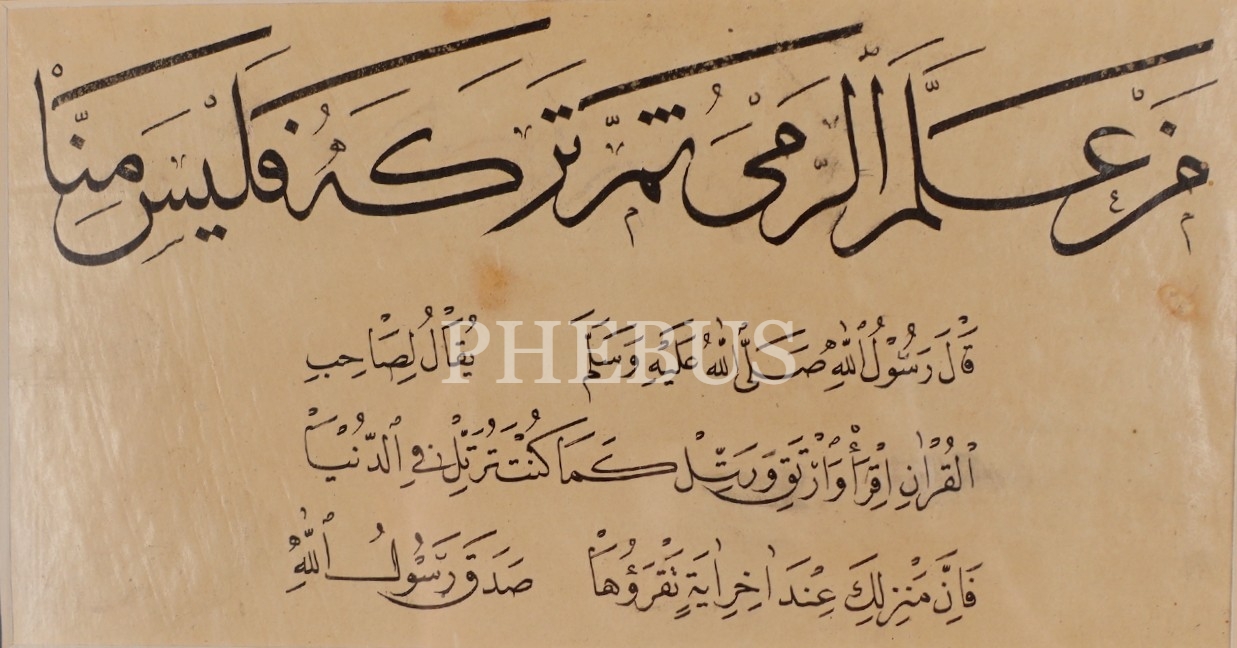 مَنْ عَلَّمَ الرَّمْيَ ثُمَّ تَرَكَهُ فَلَيْسَ مِنَّا
قَالَ رَسُولُ اللّٰهِ صَلَّى اللّٰهُ عَلَيْهِ وَسَلَّمَ يُقَالُ لِصَاحِبِ
الْقُرْاٰنِ اِقْرَأْ وَارْتَقِ وَرَتِّلْ كَمَا كُنْتَ تُرَتِّلُ فِي الدُّنْيَا
فَاِنَّ مَنْزِلَكَ عِنْدَ اٰخِرِ اٰيَةٍ تَقْرَؤُهَا صَدَقَ رَسُولُ اللّٰهِ
PHEBUS